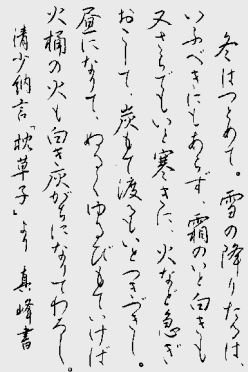 冬はつとめて。雪の降りたるは、
いふべきにもあらず、霜のいと白きも
又さらでもいと寒きに、火など急ぎ
おこして、炭もて渡るもいとつきづきし。
昼になりて、ぬるくゆるびもていけば
火桶の火も白き灰がちになりてわろし。
清少納言「枕草子」より 真峰書